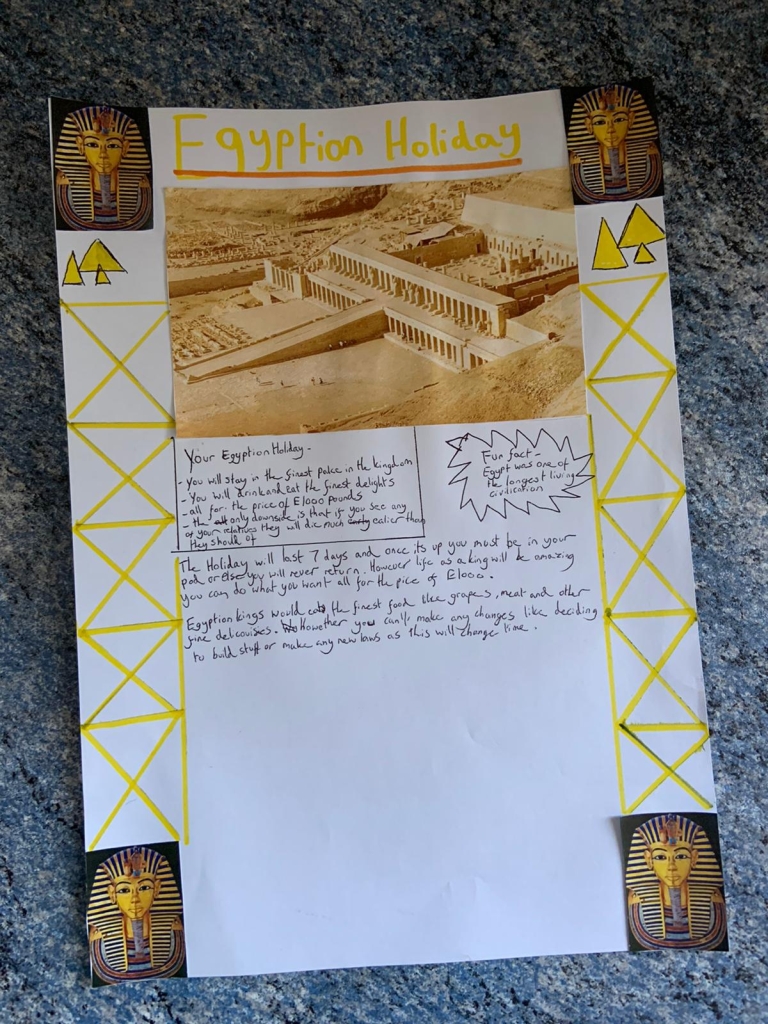 Egyption Holiday
Your Egyption Holiday -
- You will stay in the finest palce in the kingdom
- You will drink and eat the finest delights
- all for the price of £1000 pounds
- the only downside is that if you see any
of your relatives they will die much ealier than
they should of
Fun fact -
Egypt was one of
the longest living
civilication
The Holiday will last 7 days and once its up you must be in your
pod or else you will never return. However life as a king will be amazing
you can do what you want all for the pice of £1000.
Egyption kings would eat the finest food like grapes, meat and other
fine delcauises. Howother you can't make any changes like deciding
to build stuff or make any new laws as this will change time.